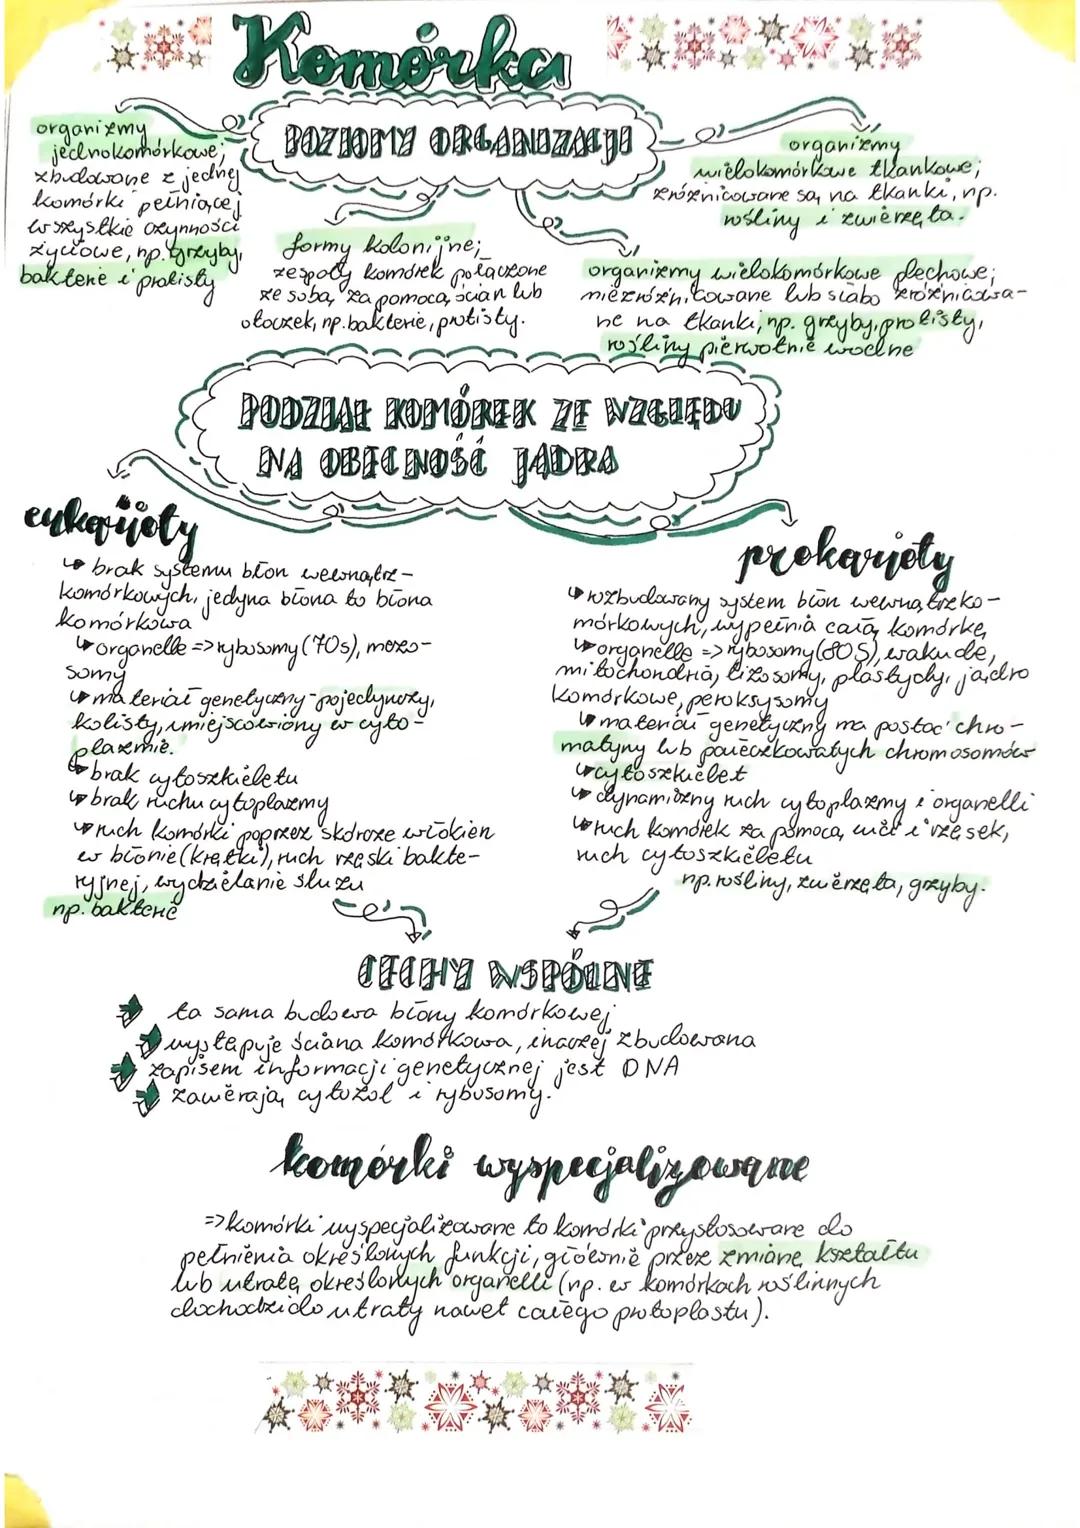 Komórka
POZIOMY ORGANIZACJI
organizmy
jednokomórkowe;
zbudowane z jednej
komórki pełniącej
wszystkie czynności
życiowe, np. grzyby,
bakterie i protisty
formy kolonijne;
zespoły komórek połączone
ze sobą, za pomocą ścian lub
otoczek, np. bakterie, protisty.
organizmy
wielokomórkowe tkankowe;
zróżnicowane są na tkanki, np.
rośliny i zwierzęta.
organizmy wielokomórkowe plechowe;
niezróżnicowane lub słabo zróżnicowa-
ne na tkanki, np. grzyby, protisty,
rośliny pierwotnie wodne
PODZIAŁ KOMÓREK ZE WZGLĘDU
NA OBECNOŚĆ JĄDRA
eukarioty
brak systemu błon wewnątrz-
komórkowych, jedyna błona to błona
komórkowa
organelle => rybosomy (70s), mezo-
somy
materiał genetyczny - pojedynczy,
kolisty, umiejscowiony w cyto-
plazmie.
brak cytoszkieletu
brak ruchu cytoplazmy
ruch komórki poprzez skórcze włókien
w błonie (krętki), ruch rzęski bakte-
ryjnej, wydzielanie śluzu
np. bakterie
prokarioty
rozbudowany system błon wewnątrzko-
mórkowych, wypełnia całą komórkę
organelle => rybosomy (80S), wakuole,
mitochondria, lizosomy, plastydy, jądro
komórkowe, peroksysomy
materiał genetyczny ma postać chro-
matyny lub pałeczkowatych chromosomów
cytoszkielet
dynamiczny ruch cytoplazmy i organelli
ruch komórek za pomocą wici i rzęsek,
ruch cytoszkieletu
np. rośliny, zwierzęta, grzyby.
CECHY WSPÓLNE
ta sama budowa błony komórkowej
występuje ściana komórkowa, inaczej zbudowana
zapisem informacji genetycznej jest DNA
zawierają cytozol i rybosomy.
komórki wyspecjalizowane
=> komórki wyspecjalizowane to komórki przystosowane do
pełnienia określonych funkcji, głównie przez zmianę kształtu
lub utratę określonych organelli (np. w komórkach roślinnych
dochodzi do utraty nawet całego protoplastu).